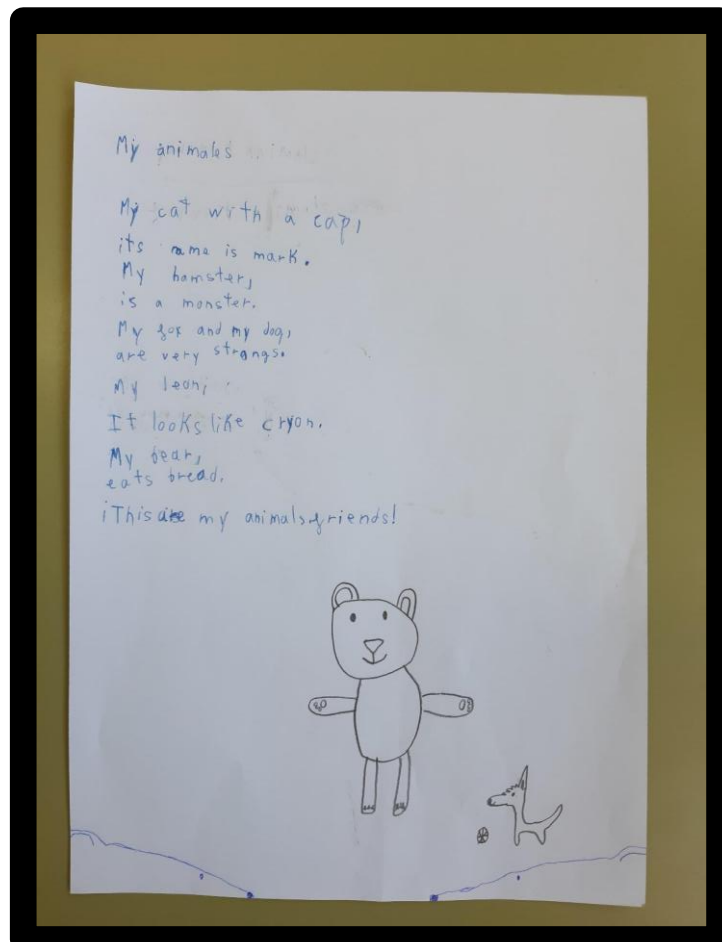 My animales
My cat with a cap,
its name is mark.
My hamster,
is a monster.
My fox and my dog,
are very strongs.
My leon,
It looks like cryon.
My bear,
eats bread.
¡This are my animals friends!